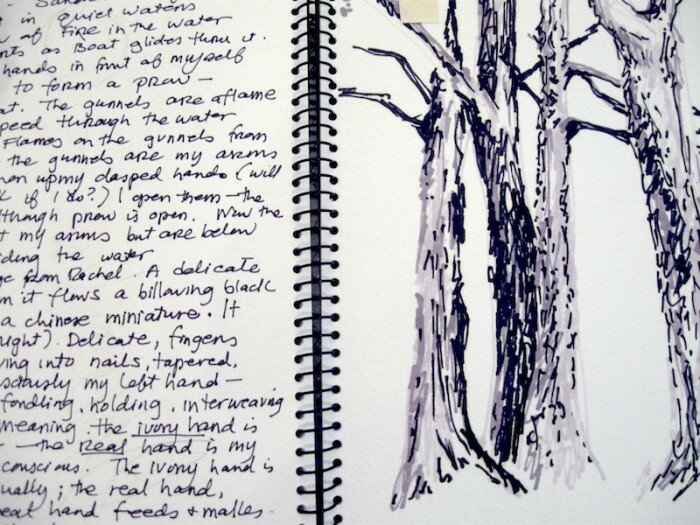 - Sande
t in quiet waters
w of Fire in the water
nts as Boat glides thru it.
hands in front of myself
to form a prow –
at. The gunnels are aflame
peed through the water
Flames on the gunnels from
the gunnels are my arms
upmy clasped hands (will
if I do?) I open them – the
lthough prow is open. Now the
t my arms but are below
iding the water
ge from Rachel. A delicate
m it flows a billowing black
a chinese miniature. It
ught). Delicate, fingers
ving into nails, tapered.
sciously my left hand –
fondling, holding, interweaving
meaning. the ivory hand is
– the real hand is my
conscious. The ivory hand is
ually; the real hand,
eat hand feeds + malles.